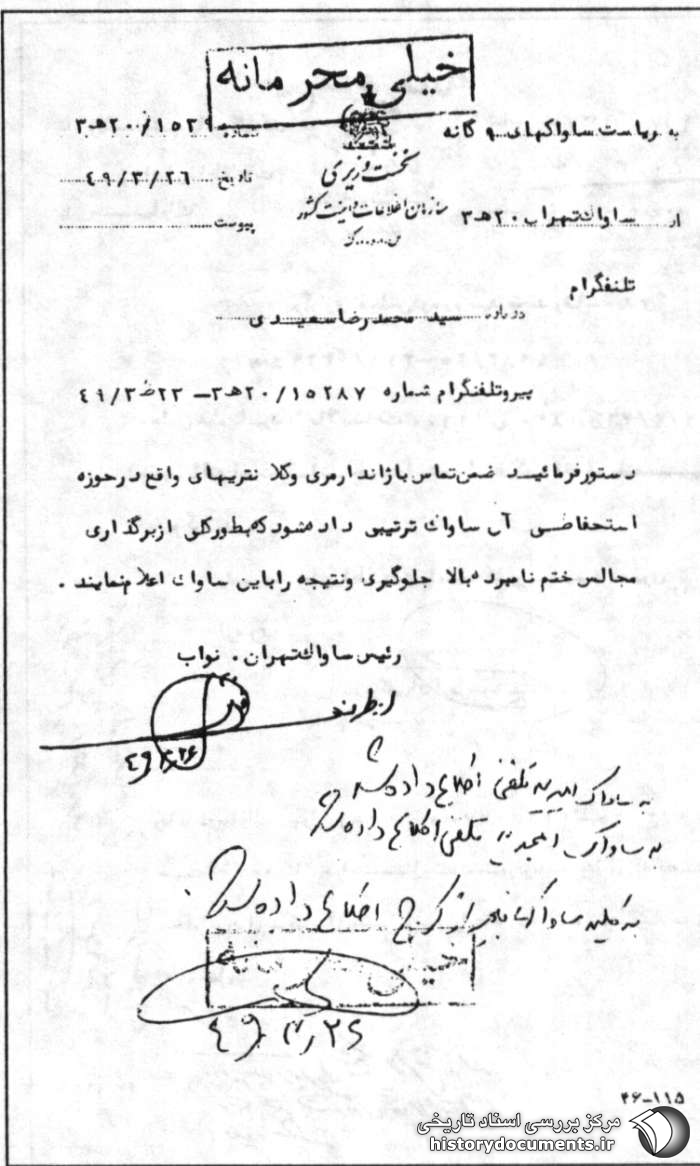 خیلی محرمانه
به ریاست ساواکهای ۹ گانه
شماره ۱۵۲۹/۲۰۰ه‍۳
نخست وزیری
تاریخ ۴۹/۳/۲۶
از ساواک تهراب ۲۰ه‍۳
سازمان اطلاعات و امنیت کشور
پیوست
س.ا.و.ا.ک
تلنفگرام
درباره سید محمدرضا سعیدی
پیرو تلفنگرام شماره ۱۵۲۸۷/۲۰ه‍۳ – ۲۳/۳/۴۹
دستور فرمائید ضمن تماس با ژاندارمری وکلانتریهای واقع در حوزه
استحفاظی آن ساواک ترتیبی داده شود که بطور کلی از برگذاری
مجالس ختم نامبرده بالا جلوگیری ونتیجه را باین ساواک اعلام نمایند .
رئیس ساواک تهران . نواب
۴۹/۳/۲۶
به ساواک تلفنی اطلاع داده شد
به ساواک تلفنی اطلاع داده شد
به کلیه ساواکهای از کرج اطلاع داده شد
۴۹/۳/۲۶
۴۶-۱۱۵
مرکز بررسی اسناد تاریخی
historydocuments.ir